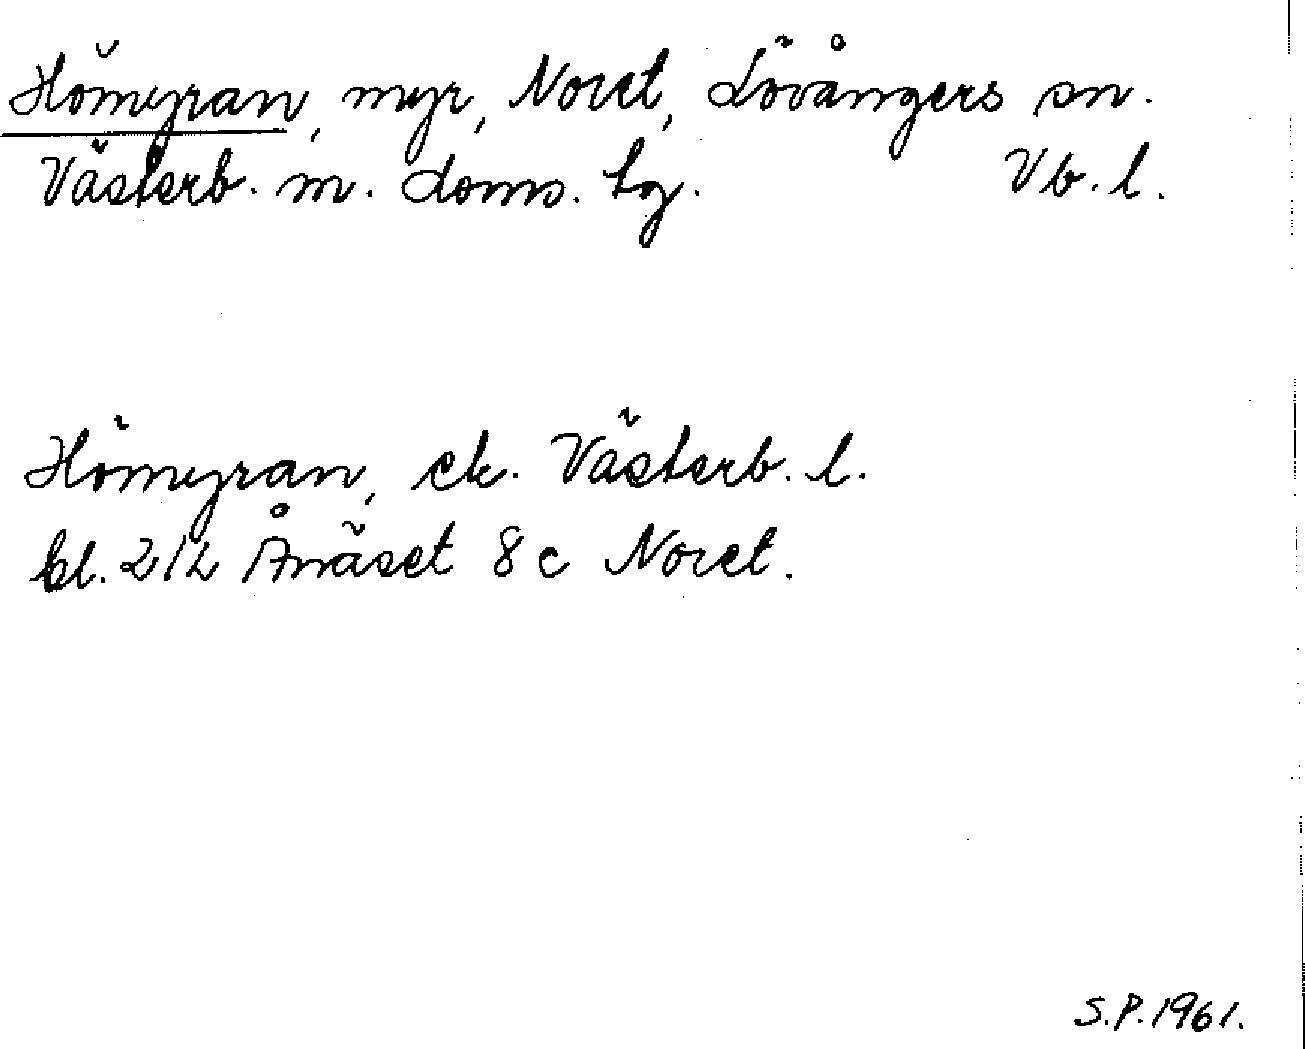 Hömyran, myr, Noret, Lövångers sn.
Västerb. m. doms. tg. Vb. l.
Hömyran, ek. Västerb. l.
bl. 212 Ånäset 8 c Noret.
S.P. 1961.